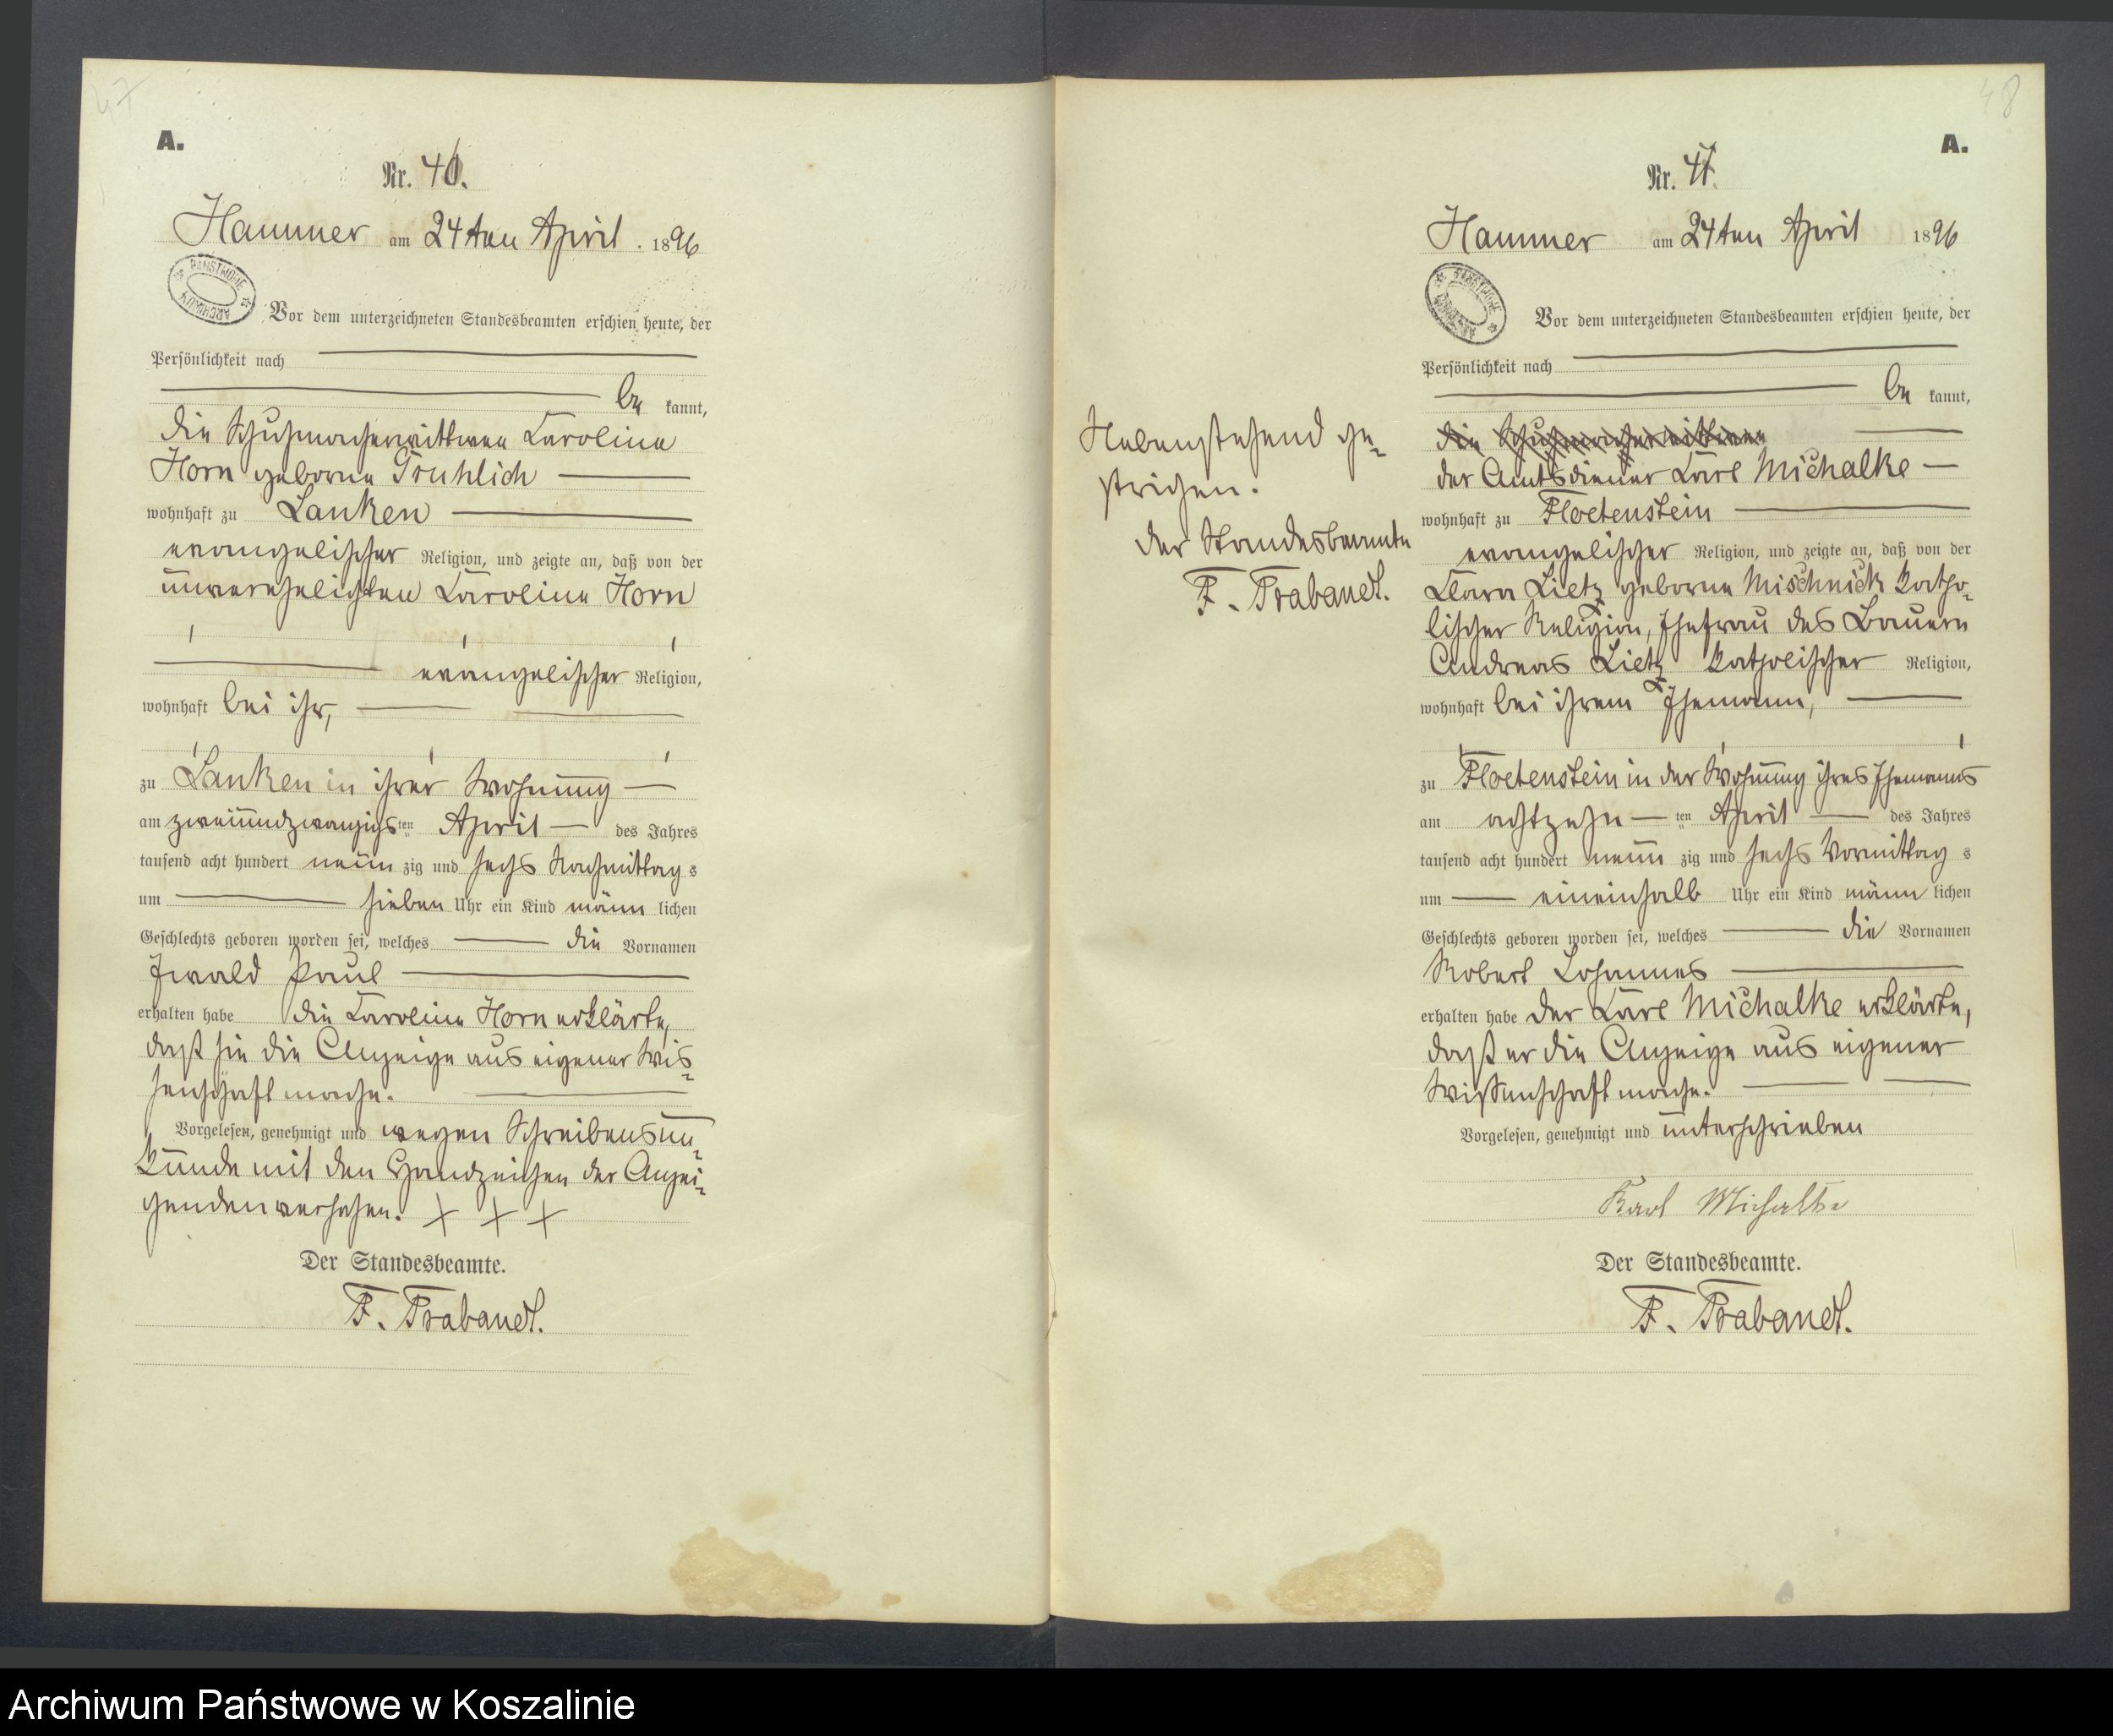 47
A.
Nr. 46.
Hammer am 24ten April. 1896
Vor dem unterzeichneten Standesbeamten erschien heute, der
Persönlichkeit nach
be kannt,
die Schuhmacherwittwe Karoline
Horn geborne
wohnhaft zu Lanken
evangelischer Religion, und zeigte an, daß von der
unverehelichten Karoline Horn
evangelischer Religion,
wohnhaft bei ihr,
zu Lanken in ihrer Wohnung
am zweiundzwanzigsten April des Jahres
tausend acht hundert neun zig und sechs Nachmittag s
um sieben Uhr ein Kind männ lichen
Geschlechts geboren worden sei, welches die Vornamen
Ewald Paul
erhalten habe die Karoline Horn erklärte,
daß sie die Anzeige aus eigener Wis-
senschaft mache.
Vorgelesen, genehmigt und wegen Schreibensun-
kunde mit den Handzeichen der Anzei-
genden versehen. + + +
Der Standesbeamte.
F. Trabandt.
PAŃSTWOWE ARCHIWUM
48
A.
Nr. 47.
Hammer am 24ten April 1896
Vor dem unterzeichneten Standesbeamten erschien heute, der
Persönlichkeit nach
be kannt,
die Schuhmacherwittwe
der Amtsdiener Karl Michalke
wohnhaft zu Floetenstein
evangelischer Religion, und zeigte an, daß von der
Klara Lietz geborne Mischnick katho-
lischer Religion, Ehefrau des Bauern
Andreas Lietz katholischer Religion,
wohnhaft bei ihrem Ehemann,
zu Floetenstein in der Wohnung ihres Ehemanns
am achtzehn ten April des Jahres
tausend acht hundert neun zig und sechs Vormittag s
um eineinhalb Uhr ein Kind männ lichen
Geschlechts geboren worden sei, welches die Vornamen
Robert Johannes
erhalten habe der Karl Michalke erklärte,
daß er die Anzeige aus eigener
Wissenschaft mache.
Vorgelesen, genehmigt und unterschrieben
Karl Michalke
Der Standesbeamte.
F. Trabandt.
Nebenstehend ge-
strichen.
Der Standesbeamte
F. Trabandt.
PAŃSTWOWE ARCHIWUM
Archiwum Państwowe w Koszalinie